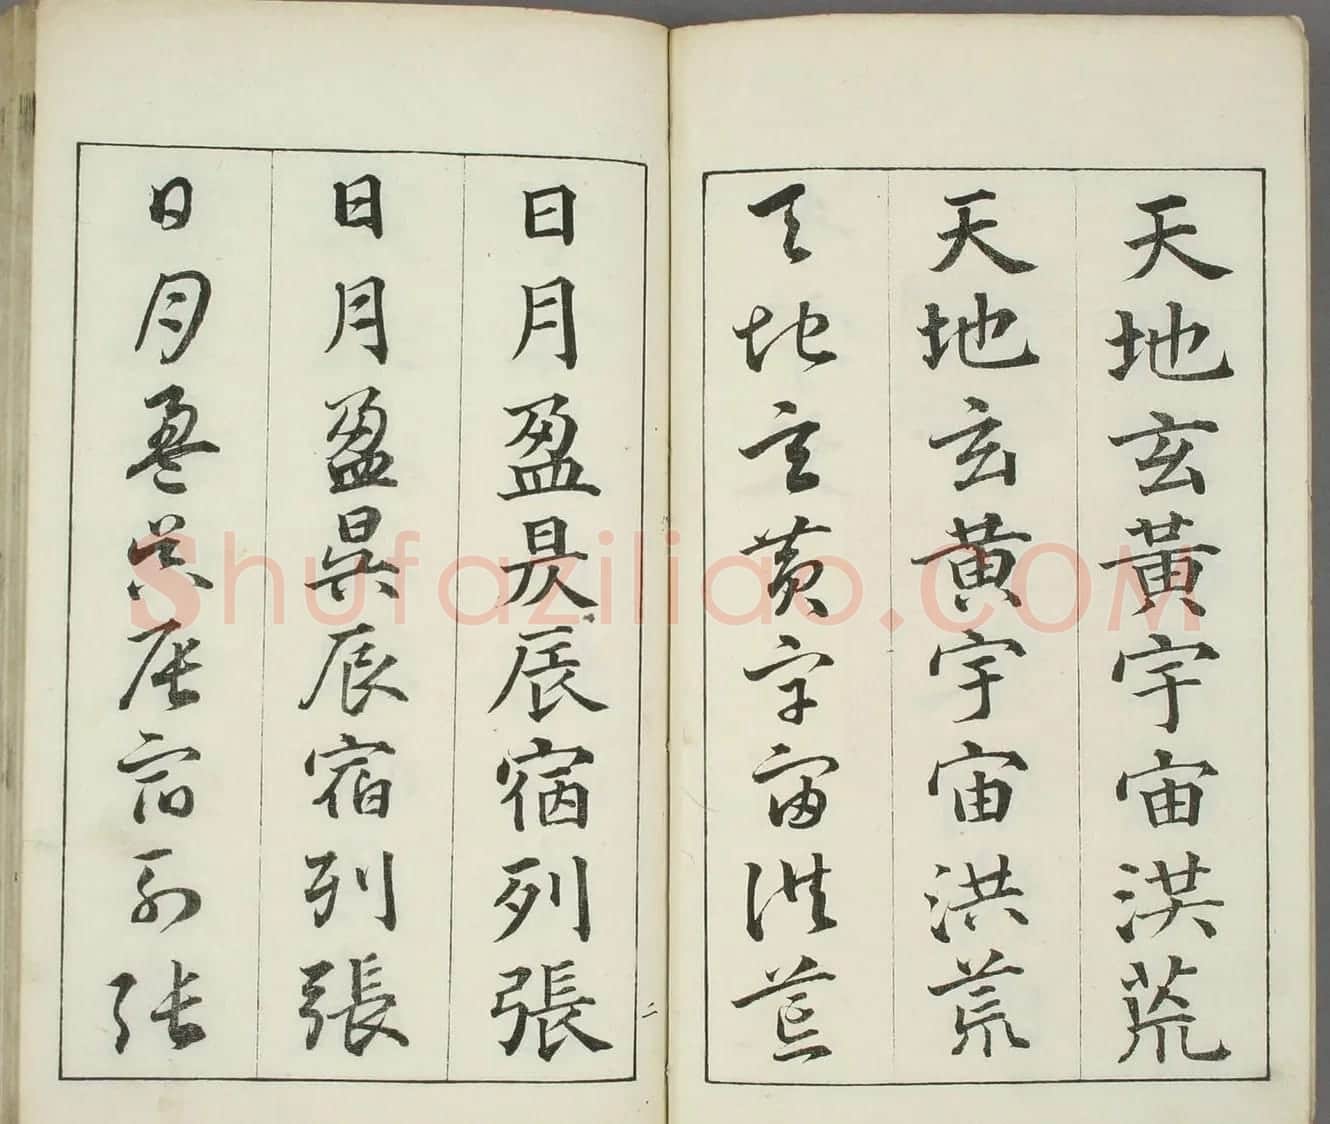 天地玄黃宇宙洪荒
天地玄黃宇宙洪荒
天地玄黃宇宙洪荒
日月盈昃辰宿列張
日月盈昃辰宿列張
日月盈昃辰宿列張
二
Shufaziliao.COM